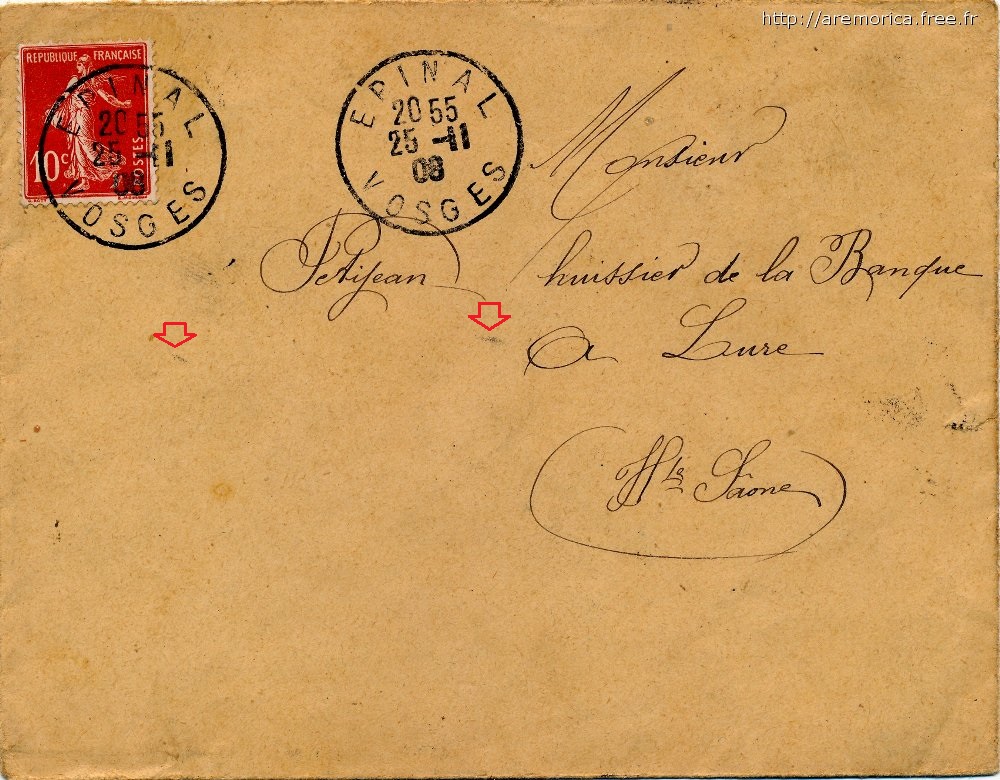 http://aremorica.free.fr
REPUBLIQUE FRANÇAISE
10c
POSTES
EPINAL
20 55
25 -11
08
VOSGES
EPINAL
20 55
25 -11
08
VOSGES
Monsieur
Petitjean huissier de la Banque
a Lure
(Hte Saône)